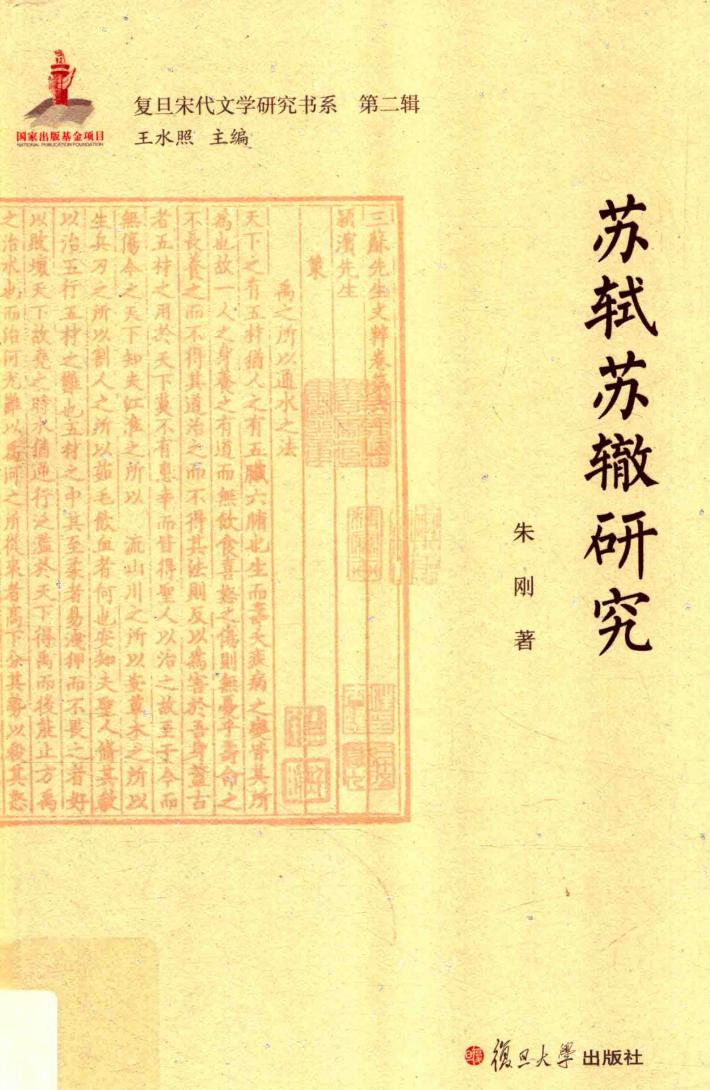 国家出版基金项目
NATIONAL PUBLICATION FOUNDATION
复旦宋代文学研究书系 第二辑
王水照 主编
苏轼苏辙研究
朱刚著
三蘇先生文粹卷第六十
潁濱先生
策
禹之所以通水之法
天下之有五材猶人之有五臟六腑也生而壽夭疾病之變皆其所
為也故一人之身養之有道而無飲食喜怒之傷則無憂乎壽命之
不長養之而不得其道治之而不得其法則反以為害於吾身蓋古
者五材之用於天下莫不有息幸而皆得聖人以治之故至于今而
無傷今之天下知夫江淮之所以 流山川之所以安草木之所以
生兵刀之所以割人之所以茹毛飲血者何也安知夫聖人脩其敝
以治五行五材之難也五材之中其至柔者易洩押而不畏之者好
以敗壞天下故堯之時水循逆行之濫於天下得禹而後能止方禹
之治水也而治河尤難以為河之所從來者高下分其勢以殺其怒
復旦大學出版社